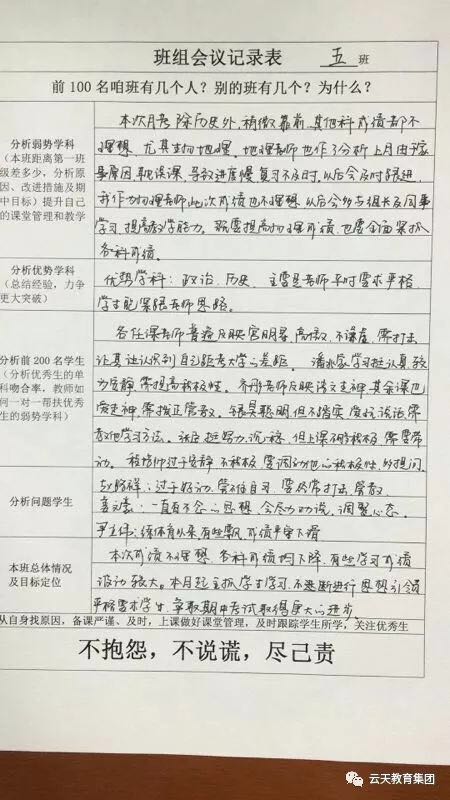 班组会议记录表 五 班
前100名咱班有几个人？别的班有几个？为什么？
分析弱势学科
（本班距离第一班
级差多少，分析原
因、改进措施及期
中目标）提升自己
的课堂管理和教学
本次月考除历史外，稍微靠前，其他科成绩都不
理想，尤其生物地理。地理老师也作了分析，上月由于家
事原因，耽误课，导致进度慢，复习不及时，以后会及时跟进，
我作为物理老师，此次成绩也不理想，以后会多与组长及同事
学习，提高教学能力。既要提高物理成绩，也要全面紧抓
各科成绩。
分析优势学科
（总结经验，力争
更大突破）
优势学科：政治、历史。主要是老师平时要求严格，
学生配紧跟老师思路。
分析前200名学生
（分析优秀生的单
科吻合率，教师如
何一对一帮扶优秀
生的弱势学科）
各任课老师普遍反映 高傲，不谦虚，需打击
让其认识到自己距考大学之差距。 学习挺认真，较
为安静，需提高积极性。 老师反映语文走神，其余课也
爱走神，需 管教。 聪明，但不踏实，爱 说话，需
教他学习方法。 挺努力，沉稳，但上课不够积极，需要带
动。 过于安静，不积极，要调动他的积极性，多提问。
分析问题学生
过于好动，管不住自己，要经常打击，管教
一直有不念的思想，会尽力劝说，调整心态。
练体育以来有些飘，成绩严重下滑
本班总体情况
及目标定位
本次成绩不理想，各科成绩均下降，有些学习成绩
波动较大。本月起主抓学生学习，不断进行思想引领，
严格要求学生，争取期中考试取得更大的进步。
从自身找原因，备课严谨、及时，上课做好课堂管理，及时跟踪学生所学，关注优秀生
不抱怨，不说谎，尽己责
云天教育集团